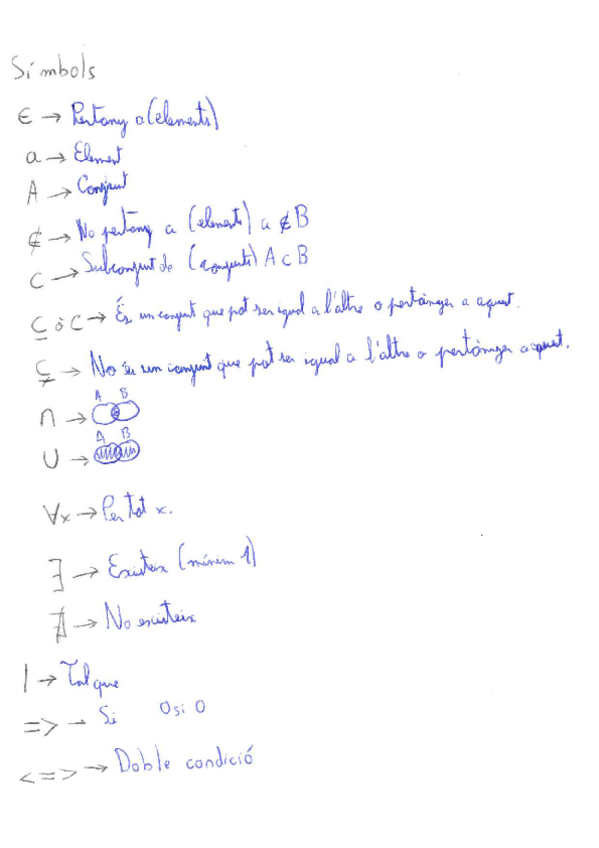 Símbols
∈ → Pertany a (elements)
a → Element
A → Conjunt
∉ → No pertany a (elements) a ∉ B
⊂ → Subconjunt de (conjunts) A ⊂ B
⊆ ò ⊂ → És un conjunt que pot ser igual a l'altre o pertànyer a aquest.
⊊ → No és un conjunt que pot ser igual a l'altre o pertànyer a aquest.
∩ → A B
∪ → A B
∀x → Per tot x.
∃ → Existeix (mínim 1)
∄ → No existeix
| → Tal que
=> → Si O si O
<=> → Doble condició